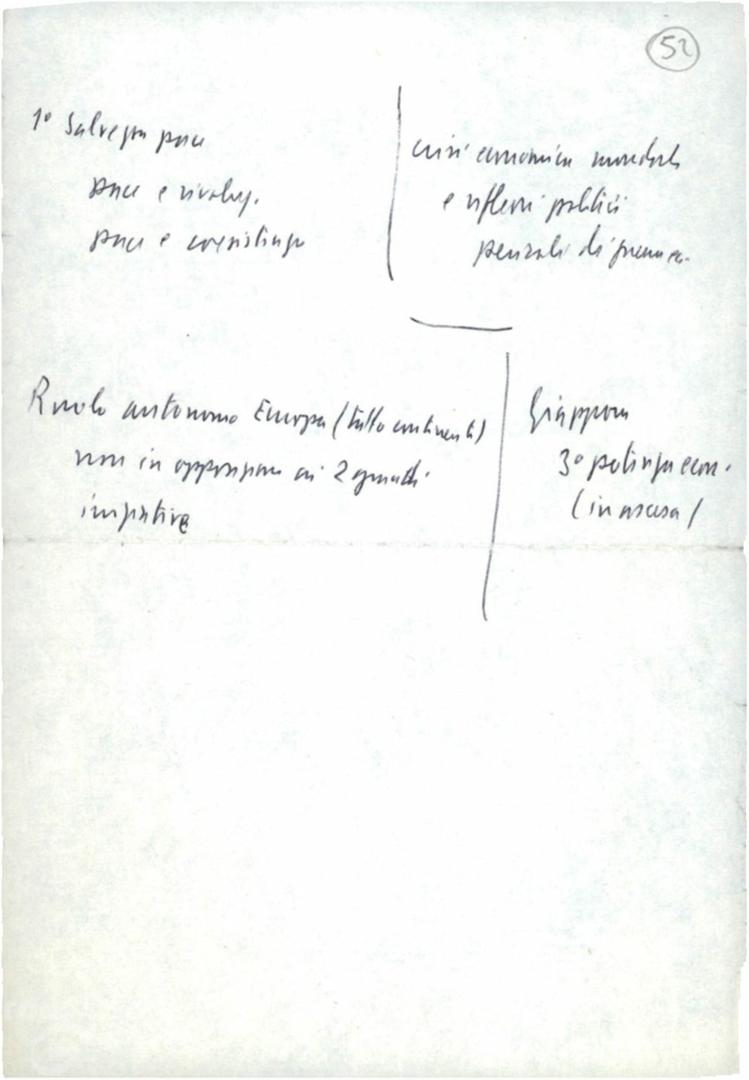 52
1° Salvezza pace
pace e rivoluz.
pace e coesistenza
crisi economica mondiale
e riflessi politici
pericoli di guerra
Ruolo autonomo Europa (tutto continente)
non in opposizione ai 2 grandi
iniziative
Giappone
3° potenza econ.
(in ascesa)